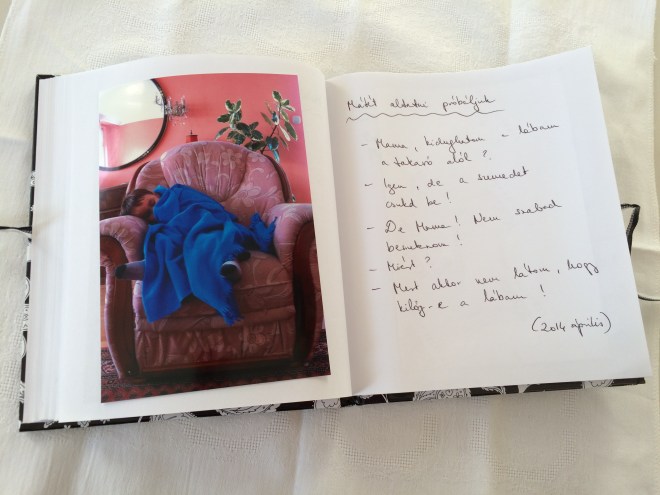 Mátét altatni próbáljuk
- Mama, kidughatom a lábam
a takaró alól?
- Igen, de a szemedet
csukd be!
- De Mama! Nem szabad
becsuknom!
- Miért?
- Mert akkor nem látom, hogy
kilóg-e a lábam!
(2014 április)